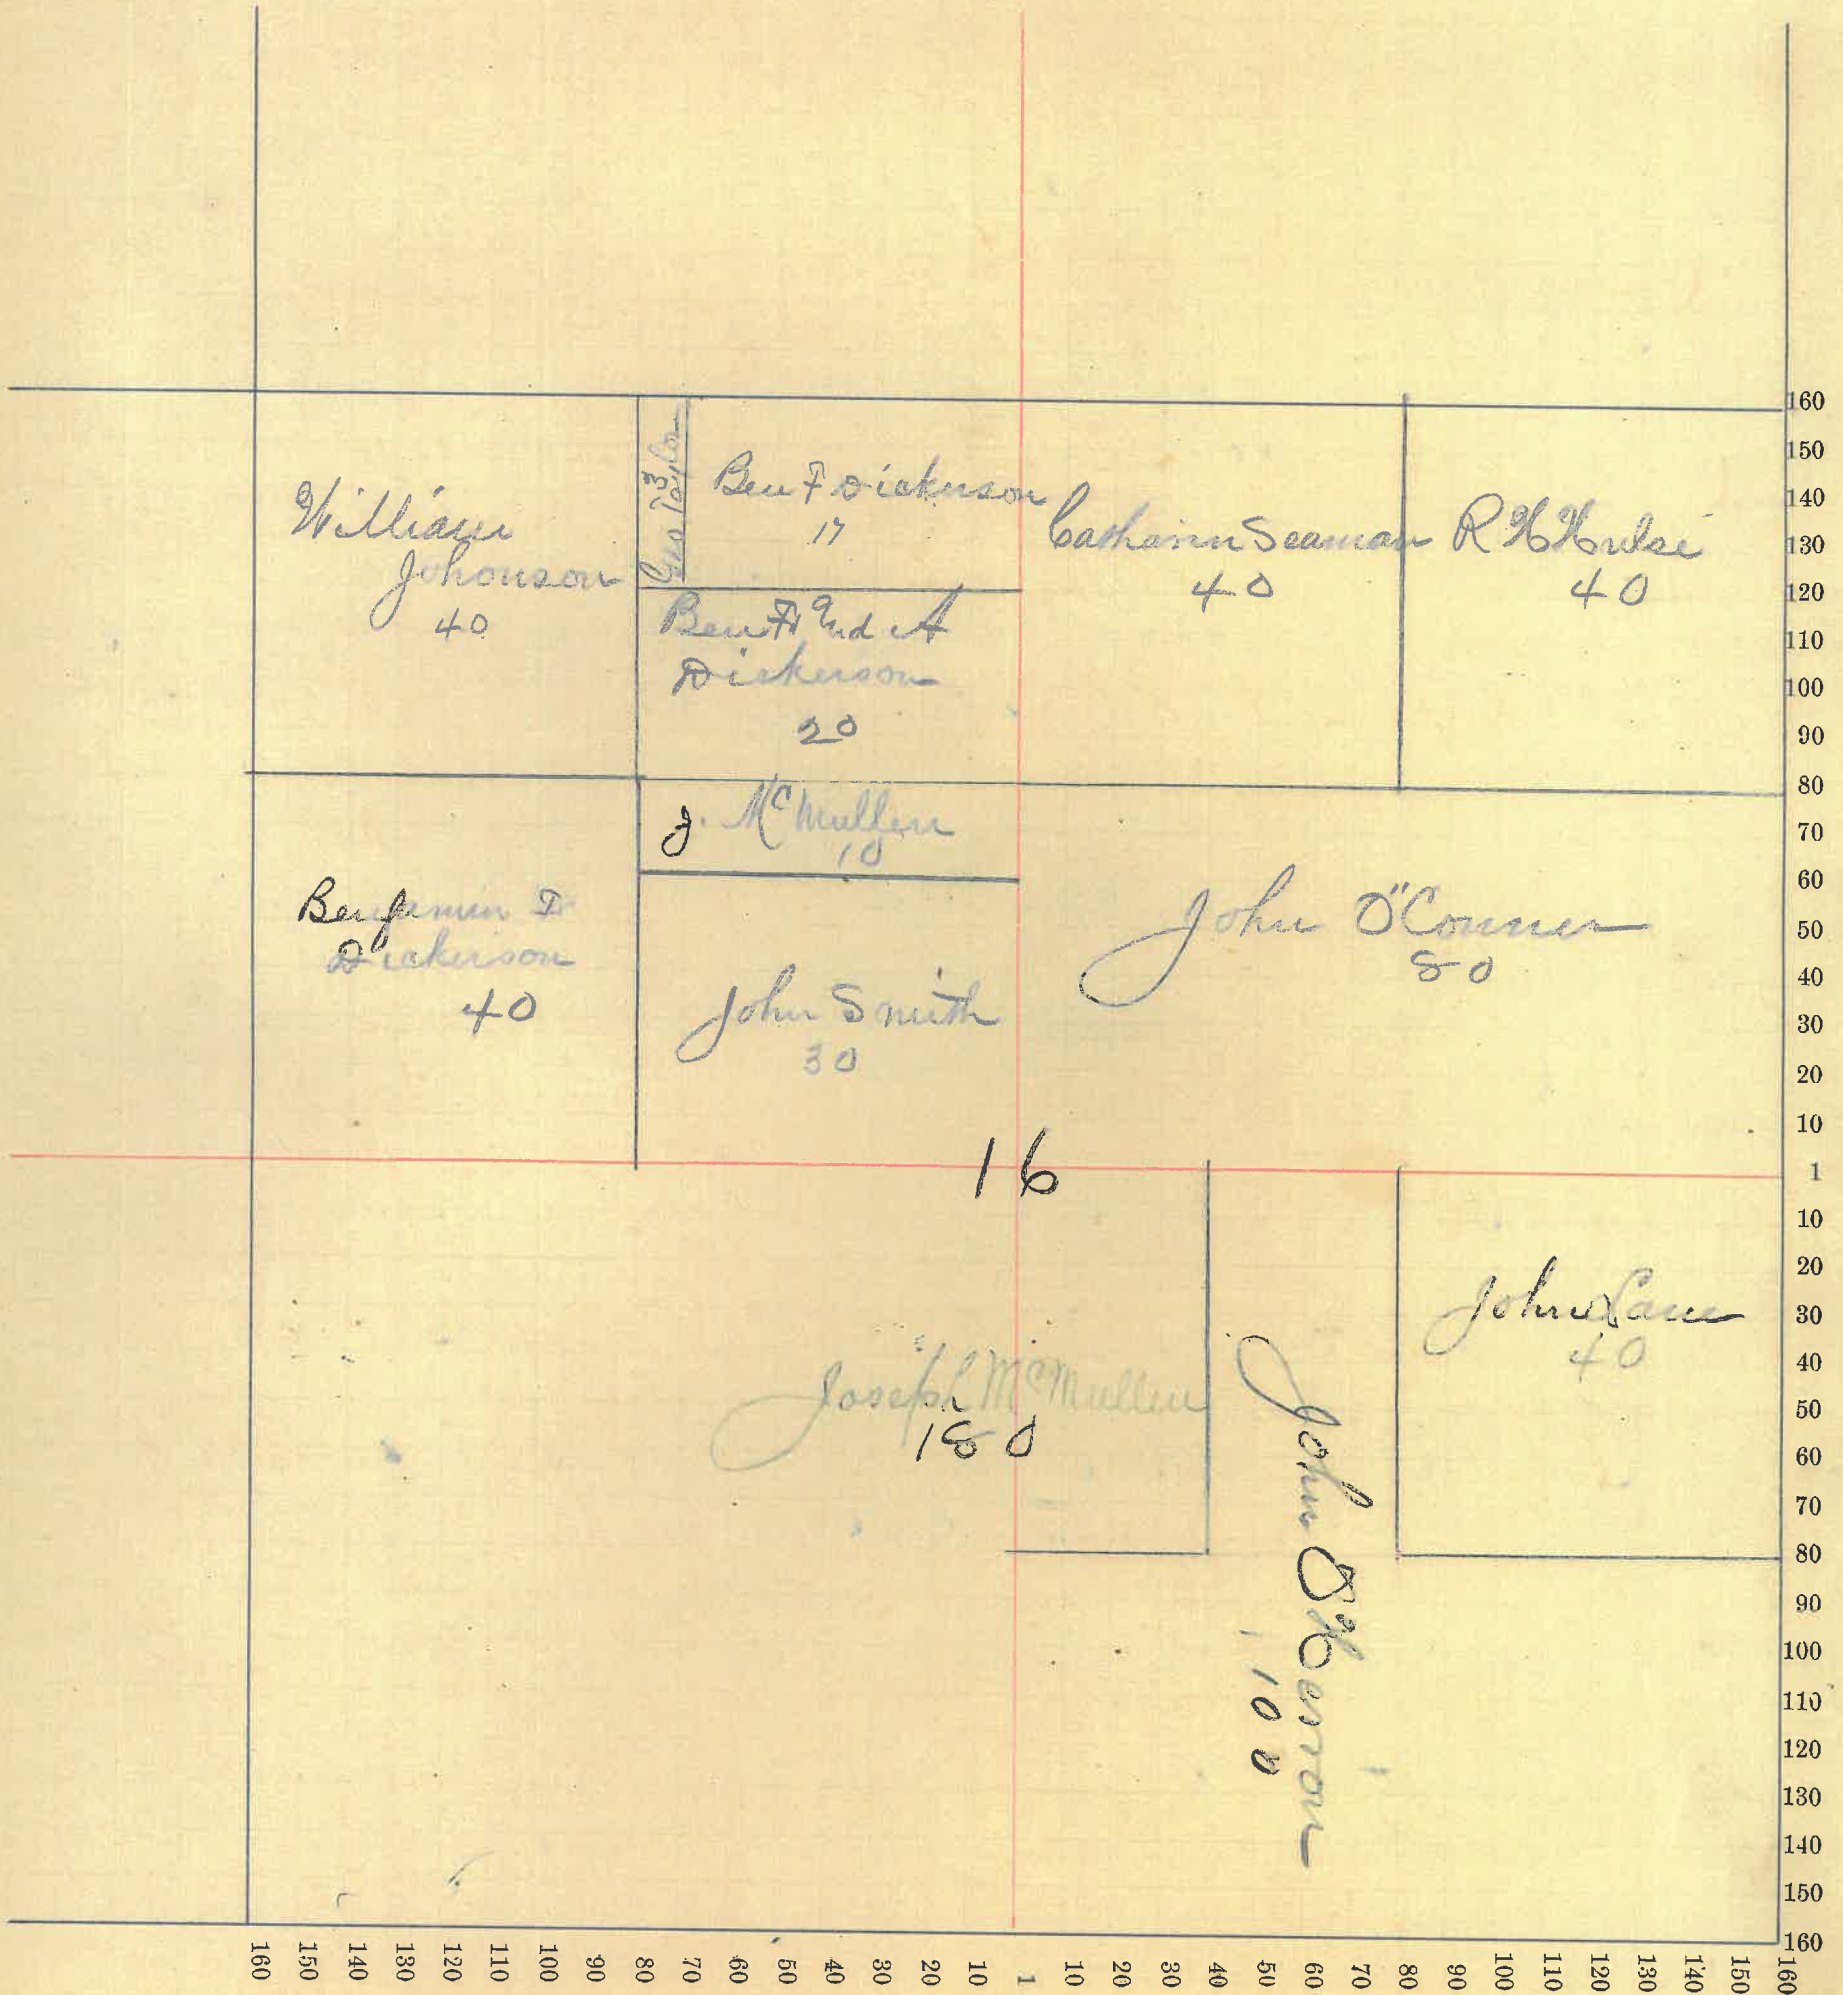 William
Johonson
40
Geo Taylor
3
Ben F Dickerson
17
Ben F and A
Dickerson
20
Catharin Seaman
40
R H Hulse
40
J. McMullen
10
Benjamin F
Dickerson
40
John Smith
30
John O"Conner
80
16
Joseph McMullen
180
John O Harron
100
John Lane
40
160
150
140
130
120
110
100
90
80
70
60
50
40
30
20
10
1
10
20
30
40
50
60
70
80
90
100
110
120
130
140
150
160
160 150 140 130 120 110 100 90 80 70 60 50 40 30 20 10 1 10 20 30 40 50 60 70 80 90 100 110 120 130 140 150 160